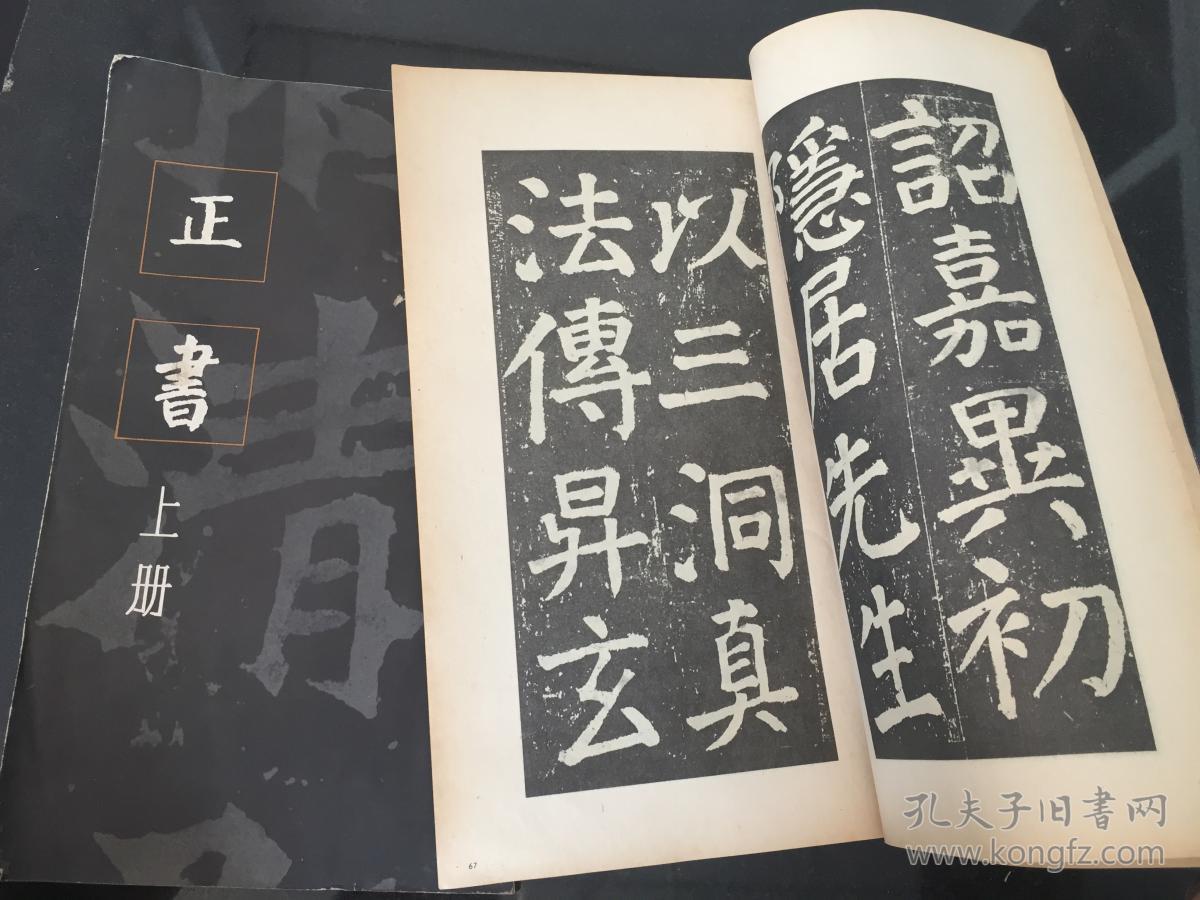 正
書
上
册
詔嘉異初
隱居先生
以三洞真
法傳昇玄
67
孔夫子旧書网
www.kongfz.com